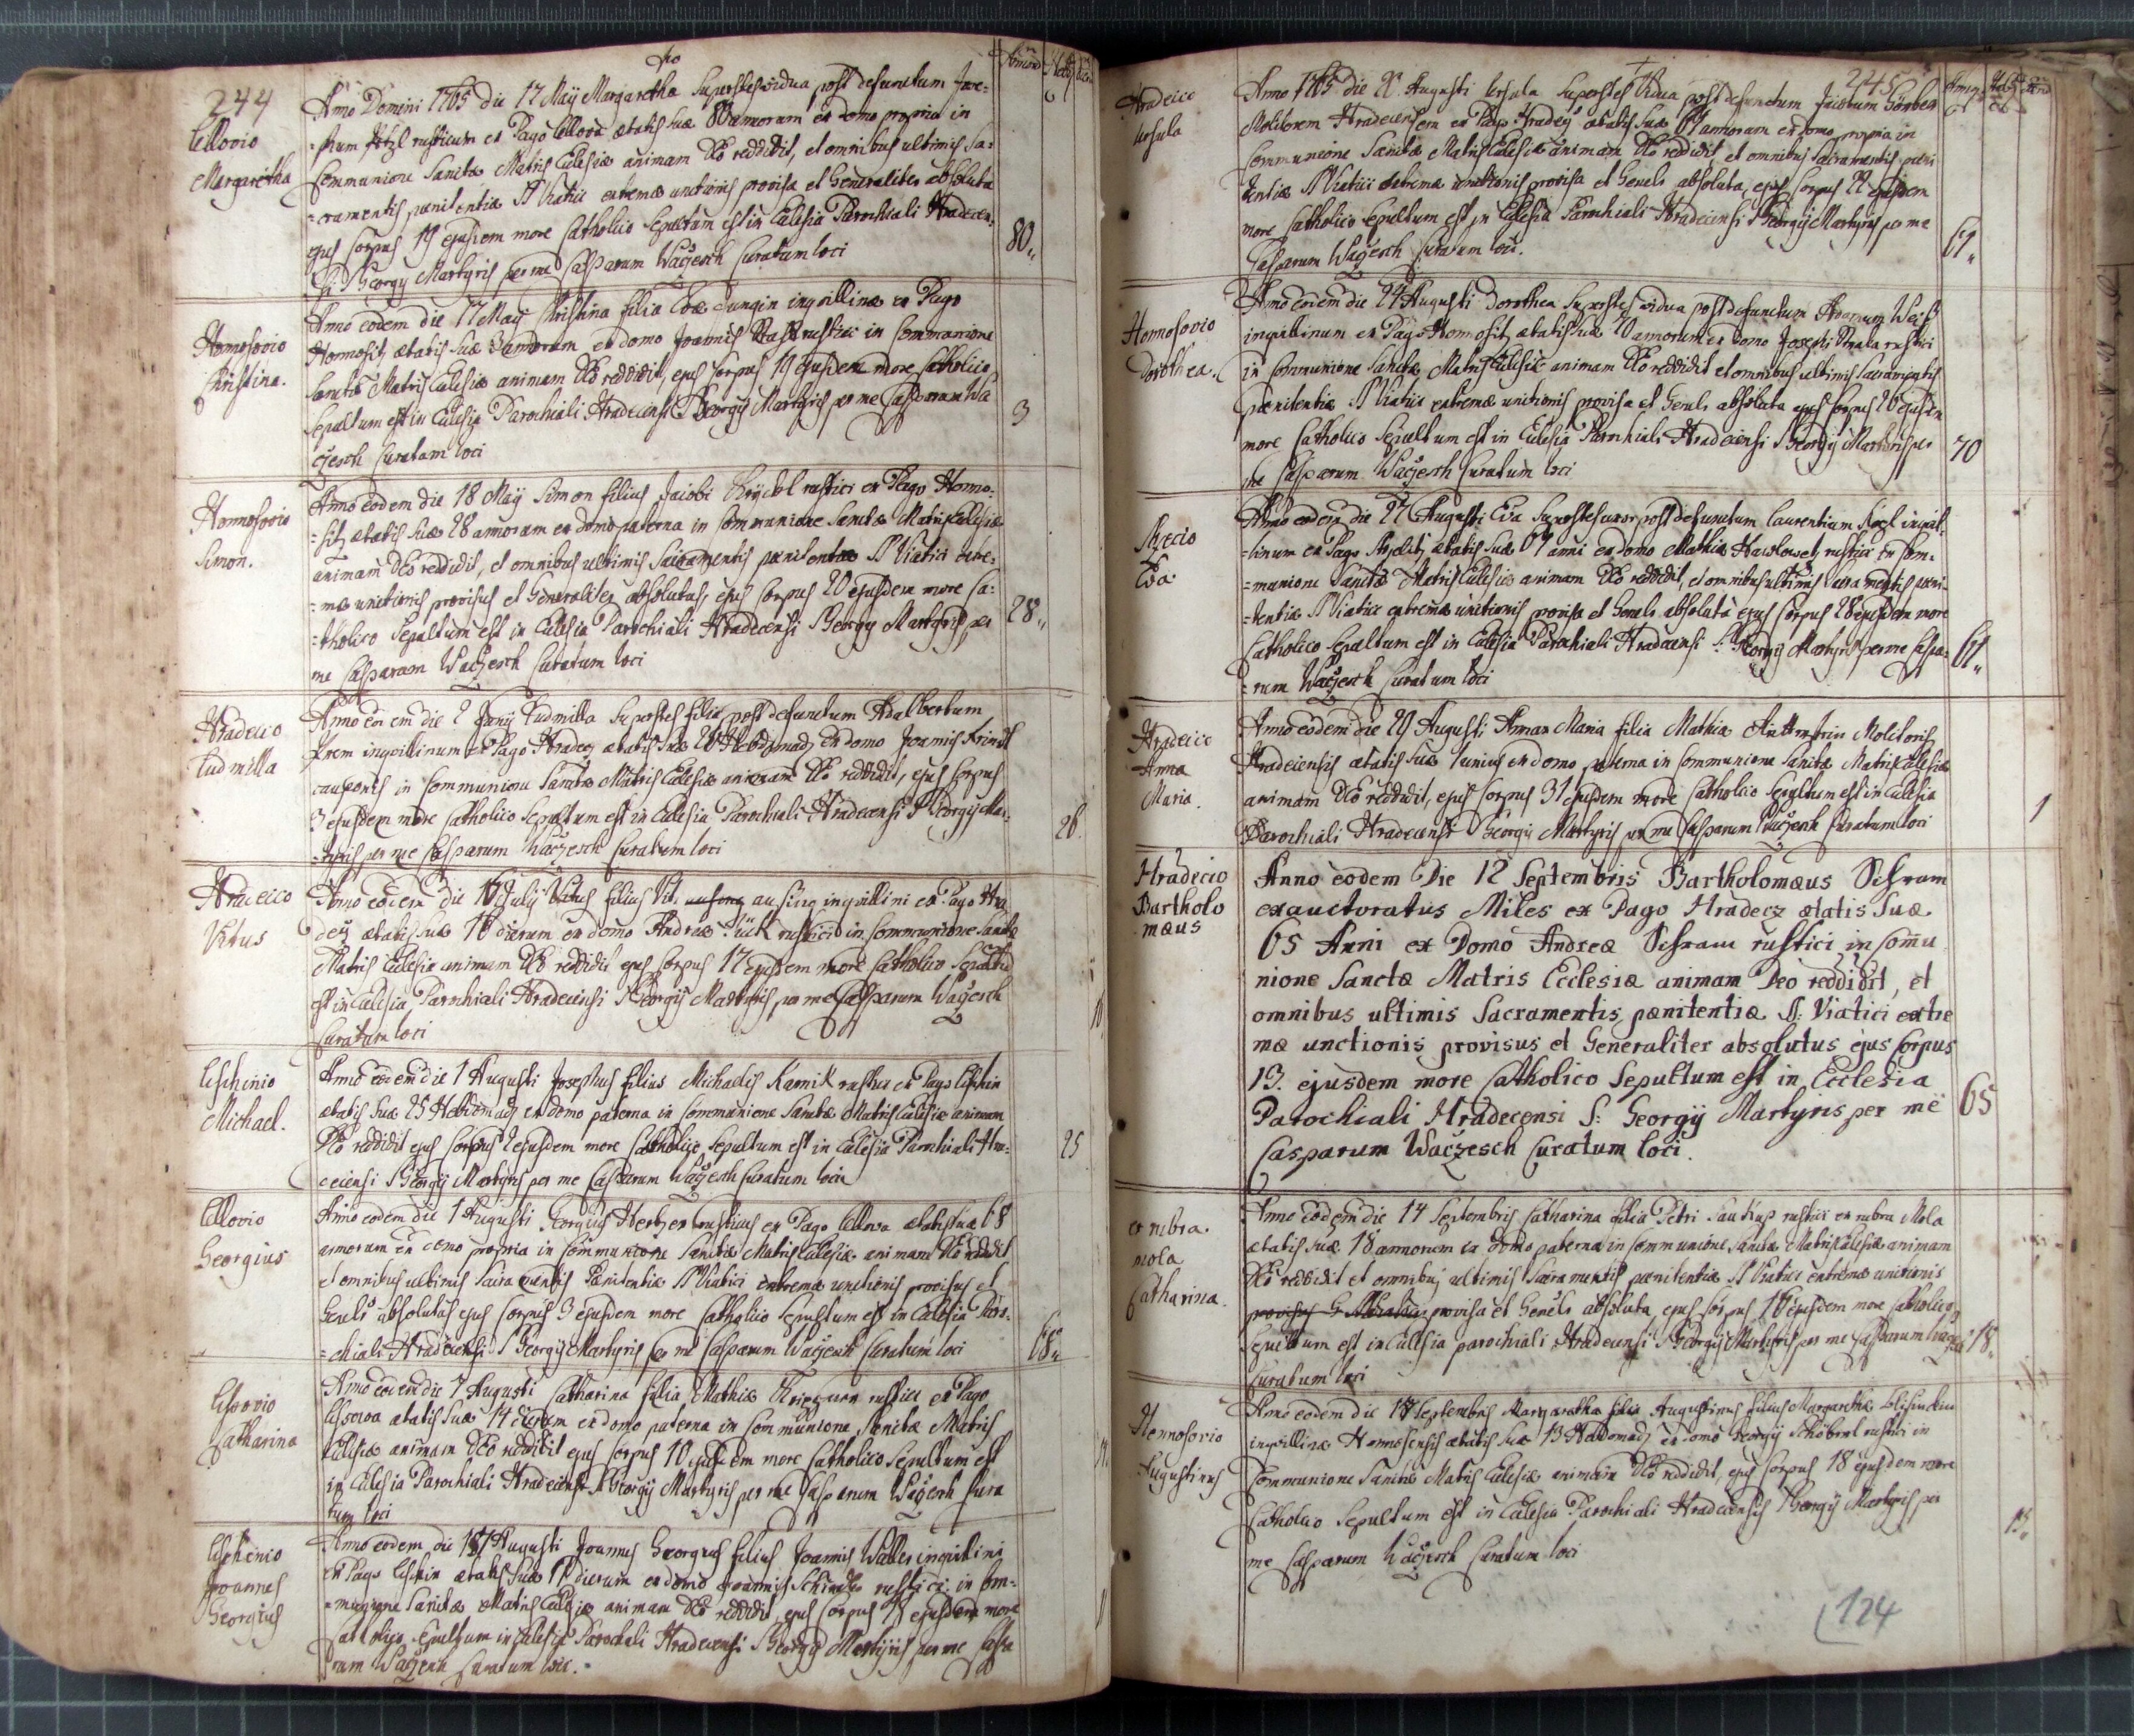 244
Ullovio
Margaretha
Anno Domini 1765 die 17 Maij Margaretha Superstes vidua post defunctum
rusticum ex Pago Ullova ætatis suæ 80 annorum ex domo propria in
Communione Sanctæ Matris Ecclesiæ animam Deo reddidit, et omnibus ultimis Sa=
=cramentis pænitentiæ S Viatici extremæ unctionis provisa et Generaliter absoluta
ejus Corpus 19 ejusdem more Catholico Sepultum est in Ecclesia Parochiali Hradecen=
si S Georgij Martyris per me Casparum Waczesch Curatum loci
80
Honnosovio
Christina.
Anno eodem die 17 Maij Christina filia Evæ Jungin inqvillinæ ex Pago
Honnositz ætatis suæ 3 annorum ex domo Joannis rustici in Communione
Sanctæ Matris Ecclesiæ animam Deo reddidit, ejus Corpus 19 ejusdem more Catholico
Sepultum est in Ecclesia Parochiali Hradecensi S Georgij Martyris per me Casparum Wa
czesch Curatum loci
3
Honnosovio
Simon.
Anno eodem die 18 Maij Simon filius Jacobi rustici ex Pago Honno=
=sitz ætatis suæ 28 annorum ex domo paterna in Communione Sanctæ Matris Ecclesiæ
animam Deo reddidit, et omnibus ultimis Sacramentis pænitentiæ S Viatici extre=
=mæ unctionis provisus et Generaliter absolutus, ejus Corpus 20 ejusdem more Ca=
=tholico Sepultum est in Ecclesia Parochiali Hradecensi S Georgij Martyris per
me Casparum Waczesch Curatum loci
28
Hradecio
Ludmilla
Anno eodem die 2 Junij Ludmilla Superstes filia post defunctum Adalbertum
inqvillinum ex Pago Hradecz ætatis suæ 26 Hebdomad ex domo Joannis
cauponis in Communione Sanctæ Matris Ecclesiæ animam Deo reddidit, ejus Corpus
3 ejusdem more Catholico Sepultum est in Ecclesia Parochiali Hradecensi S Georgij Mar=
=tyris per me Casparum Waczesch Curatum loci
26
Hradecio
Vitus
Anno eodem die 16 Julij Vitus filius Viti inqvillini ex Pago Hra
decz ætatis suæ 10 dierum ex domo Andreæ rustici in Communione Sanctæ
Matris Ecclesiæ animam Deo reddidit ejus Corpus 17 ejusdem more Catholico Sepultum
est in Ecclesia Parochiali Hradecensi S Georgij Martyris per me Casparum Waczesch
Curatum loci
10
Lischinio
Michael.
Anno eodem die 1 Augusti Josephus filius Michaelis Kamik rustici ex Pago Lischin
ætatis suæ 25 Hebdomad ex domo paterna in Communione Sanctæ Matris Ecclesiæ animam
Deo reddidit ejus Corpus 2 ejusdem more Catholico Sepultum est in Ecclesia Parochiali Hra=
decensi S Georgij Martyris per me Casparum Waczesch Curatum loci
25
Ullovio
Georgius
Anno eodem die 1 Augusti Georgius Hertzer rusticus ex Pago Ullova ætatis suæ 68
annorum ex domo propria in Communione Sanctæ Matris Ecclesiæ animam Deo reddidit
et omnibus ultimis Sacramentis Pænitentiæ S Viatici extremæ unctionis provisus et
Genls absolutus ejus Corpus 3 ejusdem more Catholico Sepultum est in Ecclesia Paro=
=chiali Hradecensi S Georgij Martyris per me Casparum Waczesch Curatum loci
68
Catharina
Anno eodem die 9 Augusti Catharina filia Mathiæ rustici ex Pago
ætatis suæ 14 dierum ex domo paterna in Communione Sanctæ Matris
Ecclesiæ animam Deo reddidit ejus Corpus 10 ejusdem more Catholico Sepultum est
in Ecclesia Parochiali Hradecensi S Georgij Martyris per me Casparum Waczesch Cura
tum loci
Lischinio
Joannes
Georgius
Anno eodem die Augusti Joannes Georgius filius Joannis inqvillini
ex Pago Lischin ætatis suæ dierum ex domo Joannis rustici in Com=
=munione Sanctæ Matris Ecclesiæ animam Deo reddidit, ejus Corpus ejusdem more
Catholico Sepultum in Ecclesia Parochiali Hradecensi S Georgij Martyris per me Caspa
rum Waczesch Curatum loci.
245
Hradecio
Ursula
Anno 1765 die Augusti Ursula Superstes Vidua post defunctum Jacobum
Molitorem Hradecensem ex Pago Hradecz ætatis suæ 61 annorum ex domo propria in
Communione Sanctæ Matris Ecclesiæ animam Deo reddidit, et omnibus Sacramentis pæni
tentiæ S Viatici extremæ unctionis provisa et Genls absoluta, ejus Corpus 22 ejusdem
more Catholico Sepultum est in Ecclesia Parochiali Hradecensi S Georgij Martyris per me
Casparum Waczesch Curatum loci.
61
Honnosovio
Dorothea.
Anno eodem die 24 Augusti Dorothea Superstes vidua post defunctum Weis
inqvilinum ex Pago Honnositz ætatis suæ 70 annorum ex Domo Josephi rustici
in Communione Sanctæ Matris Ecclesiæ animam Deo reddidit et omnibus ultimis Sacramentis
Pænitentiæ S Viatici extremæ unctionis provisa et Genls absoluta ejus Corpus 26 ejusdem
more Catholico Sepultum est in Ecclesia Parochiali Hradecensi S Georgij Martyris per
me Casparum Waczesch Curatum loci
70
Eva
Anno eodem die 27 Augusti Eva Superstes uxor post defunctum Laurentium inqvil=
=linum ex Pago ætatis suæ 61 anni ex domo Mathiæ rustici in Com=
=munione Sanctæ Matris Ecclesiæ animam Deo reddidit, et omnibus ultimis Sacramentis pæni=
=tentiæ S Viatici extremæ unctionis provisa et Genls absoluta ejus Corpus 28 ejusdem more
Catholico Sepultum est in Ecclesia Parochiali Hradecensi S: Georgij Martyris per me Caspa=
=rum Waczesch Curatum loci
61
Hradecio
Anna
Maria.
Anno eodem die 29 Augusti Anna Maria filia Mathiæ Molitoris
Hradecensis ætatis suæ 1 unius ex domo paterna in Communione Sanctæ Matris Ecclesiæ
animam Deo reddidit, ejus Corpus 31 ejusdem more Catholico Sepultum est in Ecclesia
Parochiali Hradecensi S Georgij Martyris per me Casparum Waczesch Curatum loci
1
Hradecio
Bartholo
mæus
Anno eodem Die 12 Septembris Bartholomæus Schram
exauctoratus Miles ex Pago Hradecz ætatis Suæ
65 Anni ex Domo Andreæ Schram rustici in Com̄u
nione Sanctæ Matris Ecclesiæ animam Deo reddidit, et
omnibus ultimis Sacramentis pænitentiæ S: Viatici extre
mæ unctionis provisus et Generaliter absolutus ejus Corpus
13. ejusdem more Catholico Sepultum est in Ecclesia
Parochiali Hradecensi S: Georgij Martyris per me
Casparum Waczesch Curatum loci.
65
ex rubra
mola
Catharina.
Anno eodem die 14 Septembris Catharina filia Petri Saukup rustici ex rubra Mola
ætatis suæ 18 annorum ex domo paterna in Communione Sanctæ Matris Ecclesiæ animam
Deo reddidit et omnibus ultimis Sacramentis pænitentiæ S Viatici extremæ unctionis
provisa et Genels absoluta, ejus Corpus 16 ejusdem more Catholico
Sepultum est in Ecclesia parochiali Hradecensi S Georgij Martyris per me Casparum
Curatum loci
18
Honnosovio
Augustinus
Anno eodem die 17 Septembris Augustinus filius Margarethæ
inqvillinæ Honnosensis ætatis suæ 13 Hebdomad ex domo Georgij rustici in
Communione Sanctæ Matris Ecclesiæ animam Deo reddidit, ejus Corpus 18 ejusdem more
Catholico Sepultum est in Ecclesia Parochiali Hradecensis S Georgij Martyris per
me Casparum Waczesch Curatum loci
13
124